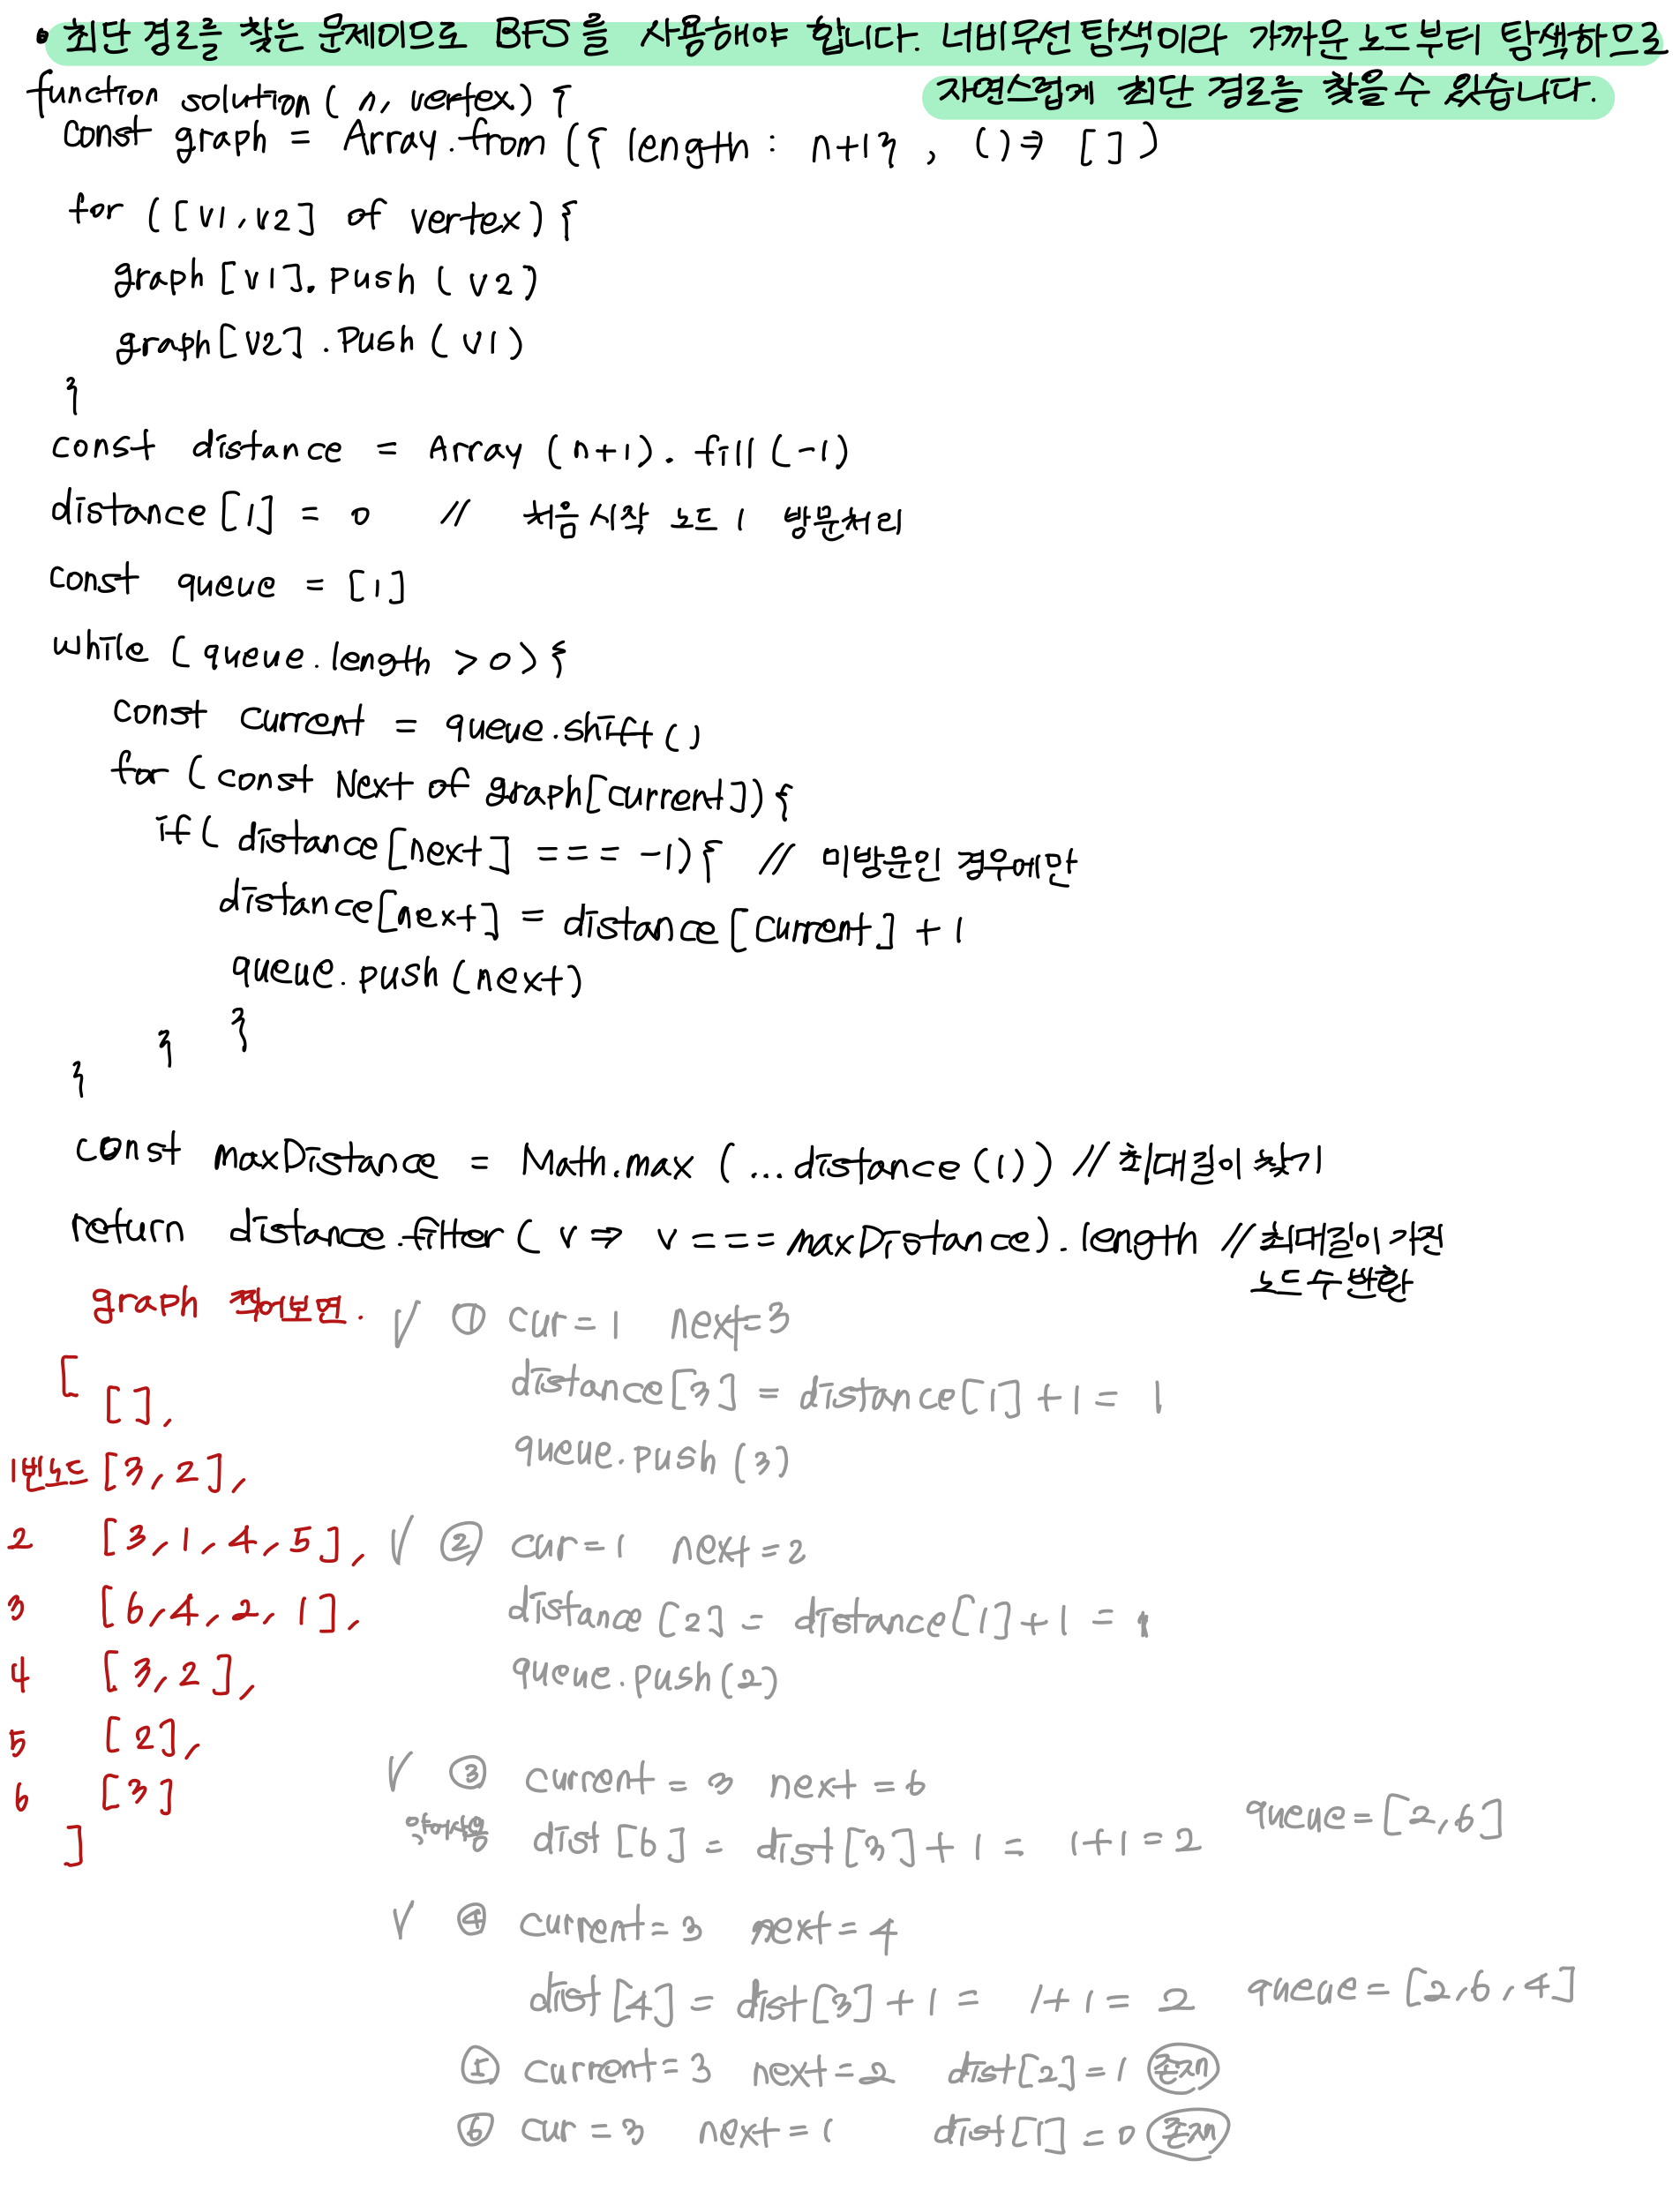 • 최단 경로를 찾는 문제이므로 BFS를 사용해야 합니다. 너비우선탐색이라 가까운 노드부터 탐색하므로
자연스럽게 최단 경로를 찾을 수 있습니다.
function solution( n, vertex) {
const graph = Array.from ({ length : n+1} , ()⇒ [])
for ([v1,v2] of vertex) {
graph [v1]. push ( v2)
graph[v2] . push ( v1)
}
const distance = Array (n+1). fill(-1)
distance [1] = 0 // 처음 시작 노드 1 방문처리
const queue = [1]
while (queue.length > 0) {
const current = queue.shift()
for (const Next of graph[current]) {
if( distance[next] === -1) { // 미방문인 경우에만
distance[next] = distance[current] + 1
queue.push(next)
}
}
}
const maxDistance = Math.max (...distance(1)) // 최대길이 찾기
return distance.filter( v ⇒ v === maxDistance). length // 최대길이 가진
노드 수 반환
graph 찍어보면.
[
[],
1번노드 [3,2],
2 [3,1,4,5],
3 [6,4,2,1],
4 [3,2],
5 [2],
6 [3]
]
√ ① cur=1 next=3
distance[3] = distance[1] +1 = 1
queue.push (3)
√ ② cur=1 next=2
distance [2] = distance[1]+1 = 1
queue.push(2)
√ ③ current = 3 next = 6
dist [6] = dist[3]+1 = 1+1=2 queue=[2,6]
√ ④ current=3 next=4
dist[4] = dist[3]+1 = 1+1= 2 queue= [2,6,4]
⑤ current=3 next=2 dist[2]=1 존재
⑥ cur = 3 next=1 dist[1] = 0 존재